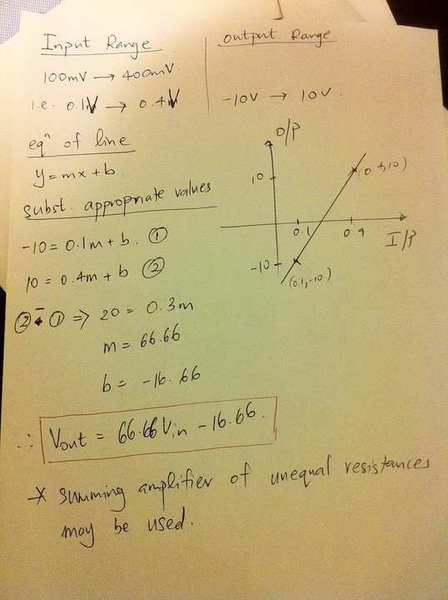 Input Range
Output Range
100mV → 400mV
i.e. 0.1V → 0.4V
-10V → 10V.
eqⁿ of line
y = mx + b
subst. appropriate values
-10 = 0.1m + b. ①
10 = 0.4m + b ②
② - ① ⇒ 20 = 0.3m
m = 66.66
b = -16.66
∴ Vout = 66.66Vin - 16.66.
* summing amplifier of unequal resistances
may be used.
O/P
10
(0.4,10)
0.1
0.4
I/P
-10
(0.1,-10)